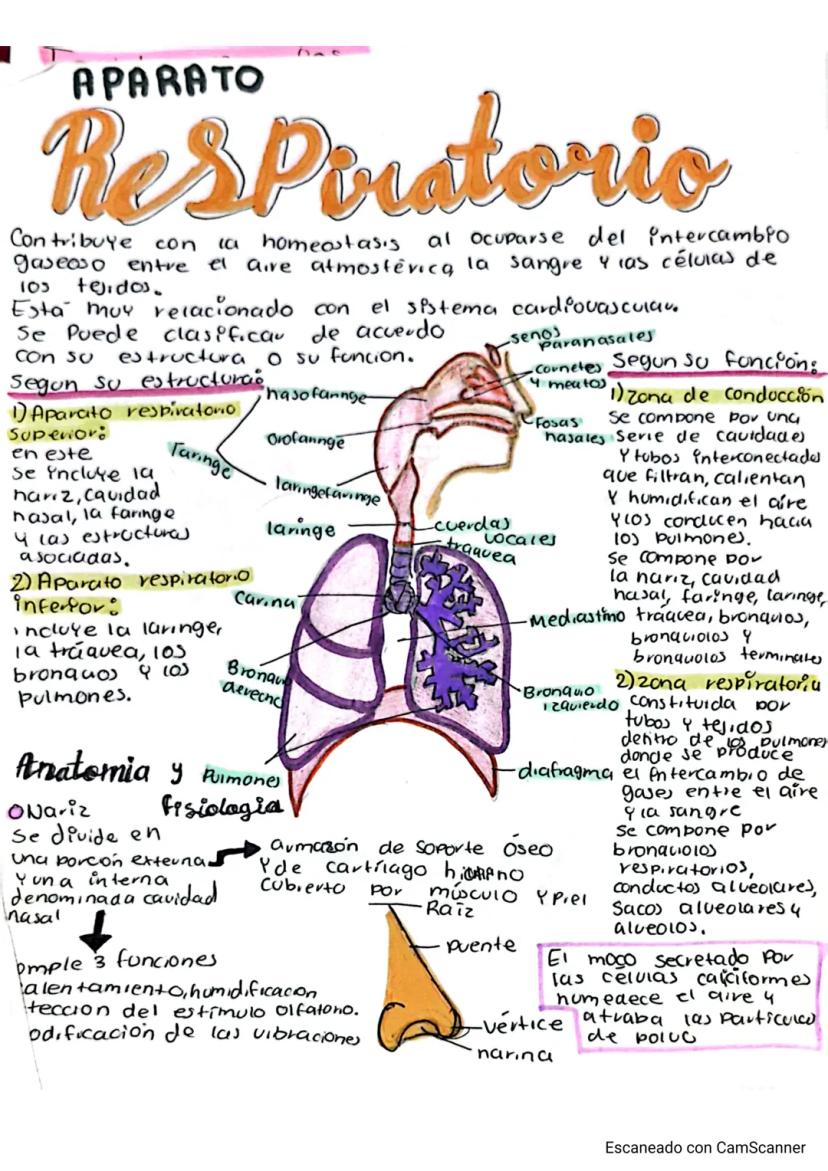 APARATO
Respiratorio
Contribuye con la homeostasis al ocuparse del intercambio
gaseoso entre el aire atmosférica la sangre y las células de
los tejidos.
Está muy relacionado con el sistema cardiovascular.
Se puede clasificar de acuerdo
con su estructura o su función.
Segun su estructura:
1) Aparato respiratorio
superior:
en este
se incluye la
nariz, cavidad
nasal, la faringe
y las estructuras
asociadas.
2) Aparato respiratorio
inferior:
incluye la laringe,
la tráquea, los
bronquos y los
pulmones.
senos
paranasales
cornetes
y meatos
Fosas
nasales
nasofaringe
Orofaringe
Faringe
laringofaringe
laringe
cuerdas
vocales
traquea
Carina
Mediastino
Bronquo
derecho
Bronquio
izquierdo
Pulmones
diafragma
Segun su función:
1) zona de conducción
se compone por una
serie de cavidades
y tubos interconectados
que filtran, calientan
y humidifican el aire
y los conducen hacia
los pulmones.
se compone por
la nariz, cavidad
nasal, faringe, laringe,
traquea, bronquios,
bronquiolos y
bronquiolos terminales
2) zona respiratoria
constituida por
tubos y tejidos
dentro de los pulmones
donde se produce
el intercambio de
gases entre el aire
y la sangre
se compone por
bronquiolos
respiratorios,
conductos alveolares,
sacos alveolares y
alveolos.
Anatomia y
fisiologia
Nariz
se divide en
una porcón externa
y una interna
denominada cavidad
nasal
armazón de soporte óseo
y de cartílago hialino
cubierto por músculo y piel
omple 3 funciones
alentamiento, humidificacon
tección del estímulo olfatorio.
odificación de las vibraciones
Raíz
puente
vértice
narina
El moco secretado por
las celulas caliciformes
humedece el aire y
atraba las particulas
de polvo
Escaneado con CamScanner